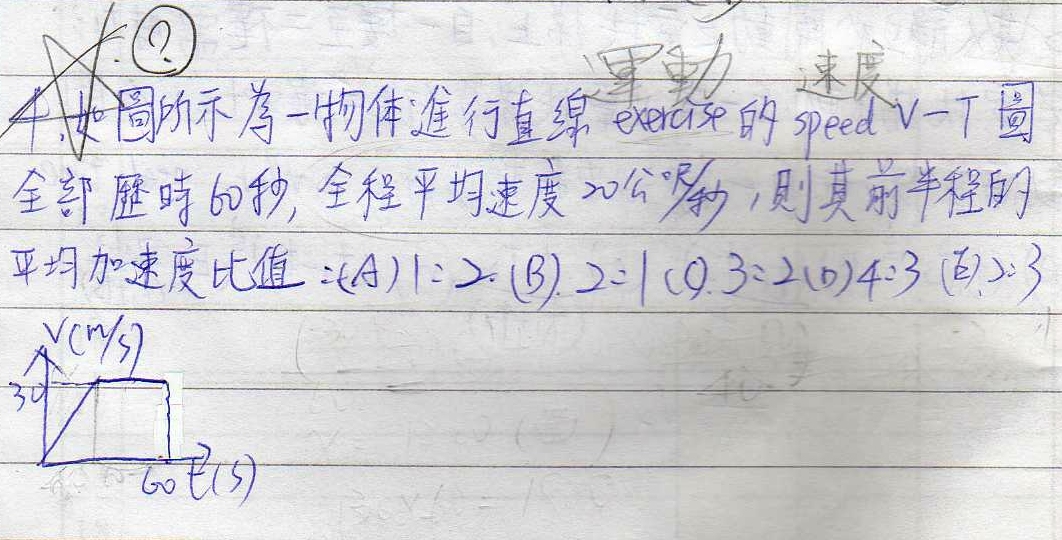 ?
運動 速度
4.如圖所示為一物体進行直線 exercise 的 speed V-T 圖
全部歷時60秒, 全程平均速度20公呎/秒,則其前半程的
平均加速度比值 :(A)1:2.(B).2:1(C).3:2(D)4:3 (E).2:3
V(m/s)
30
60 t(s)